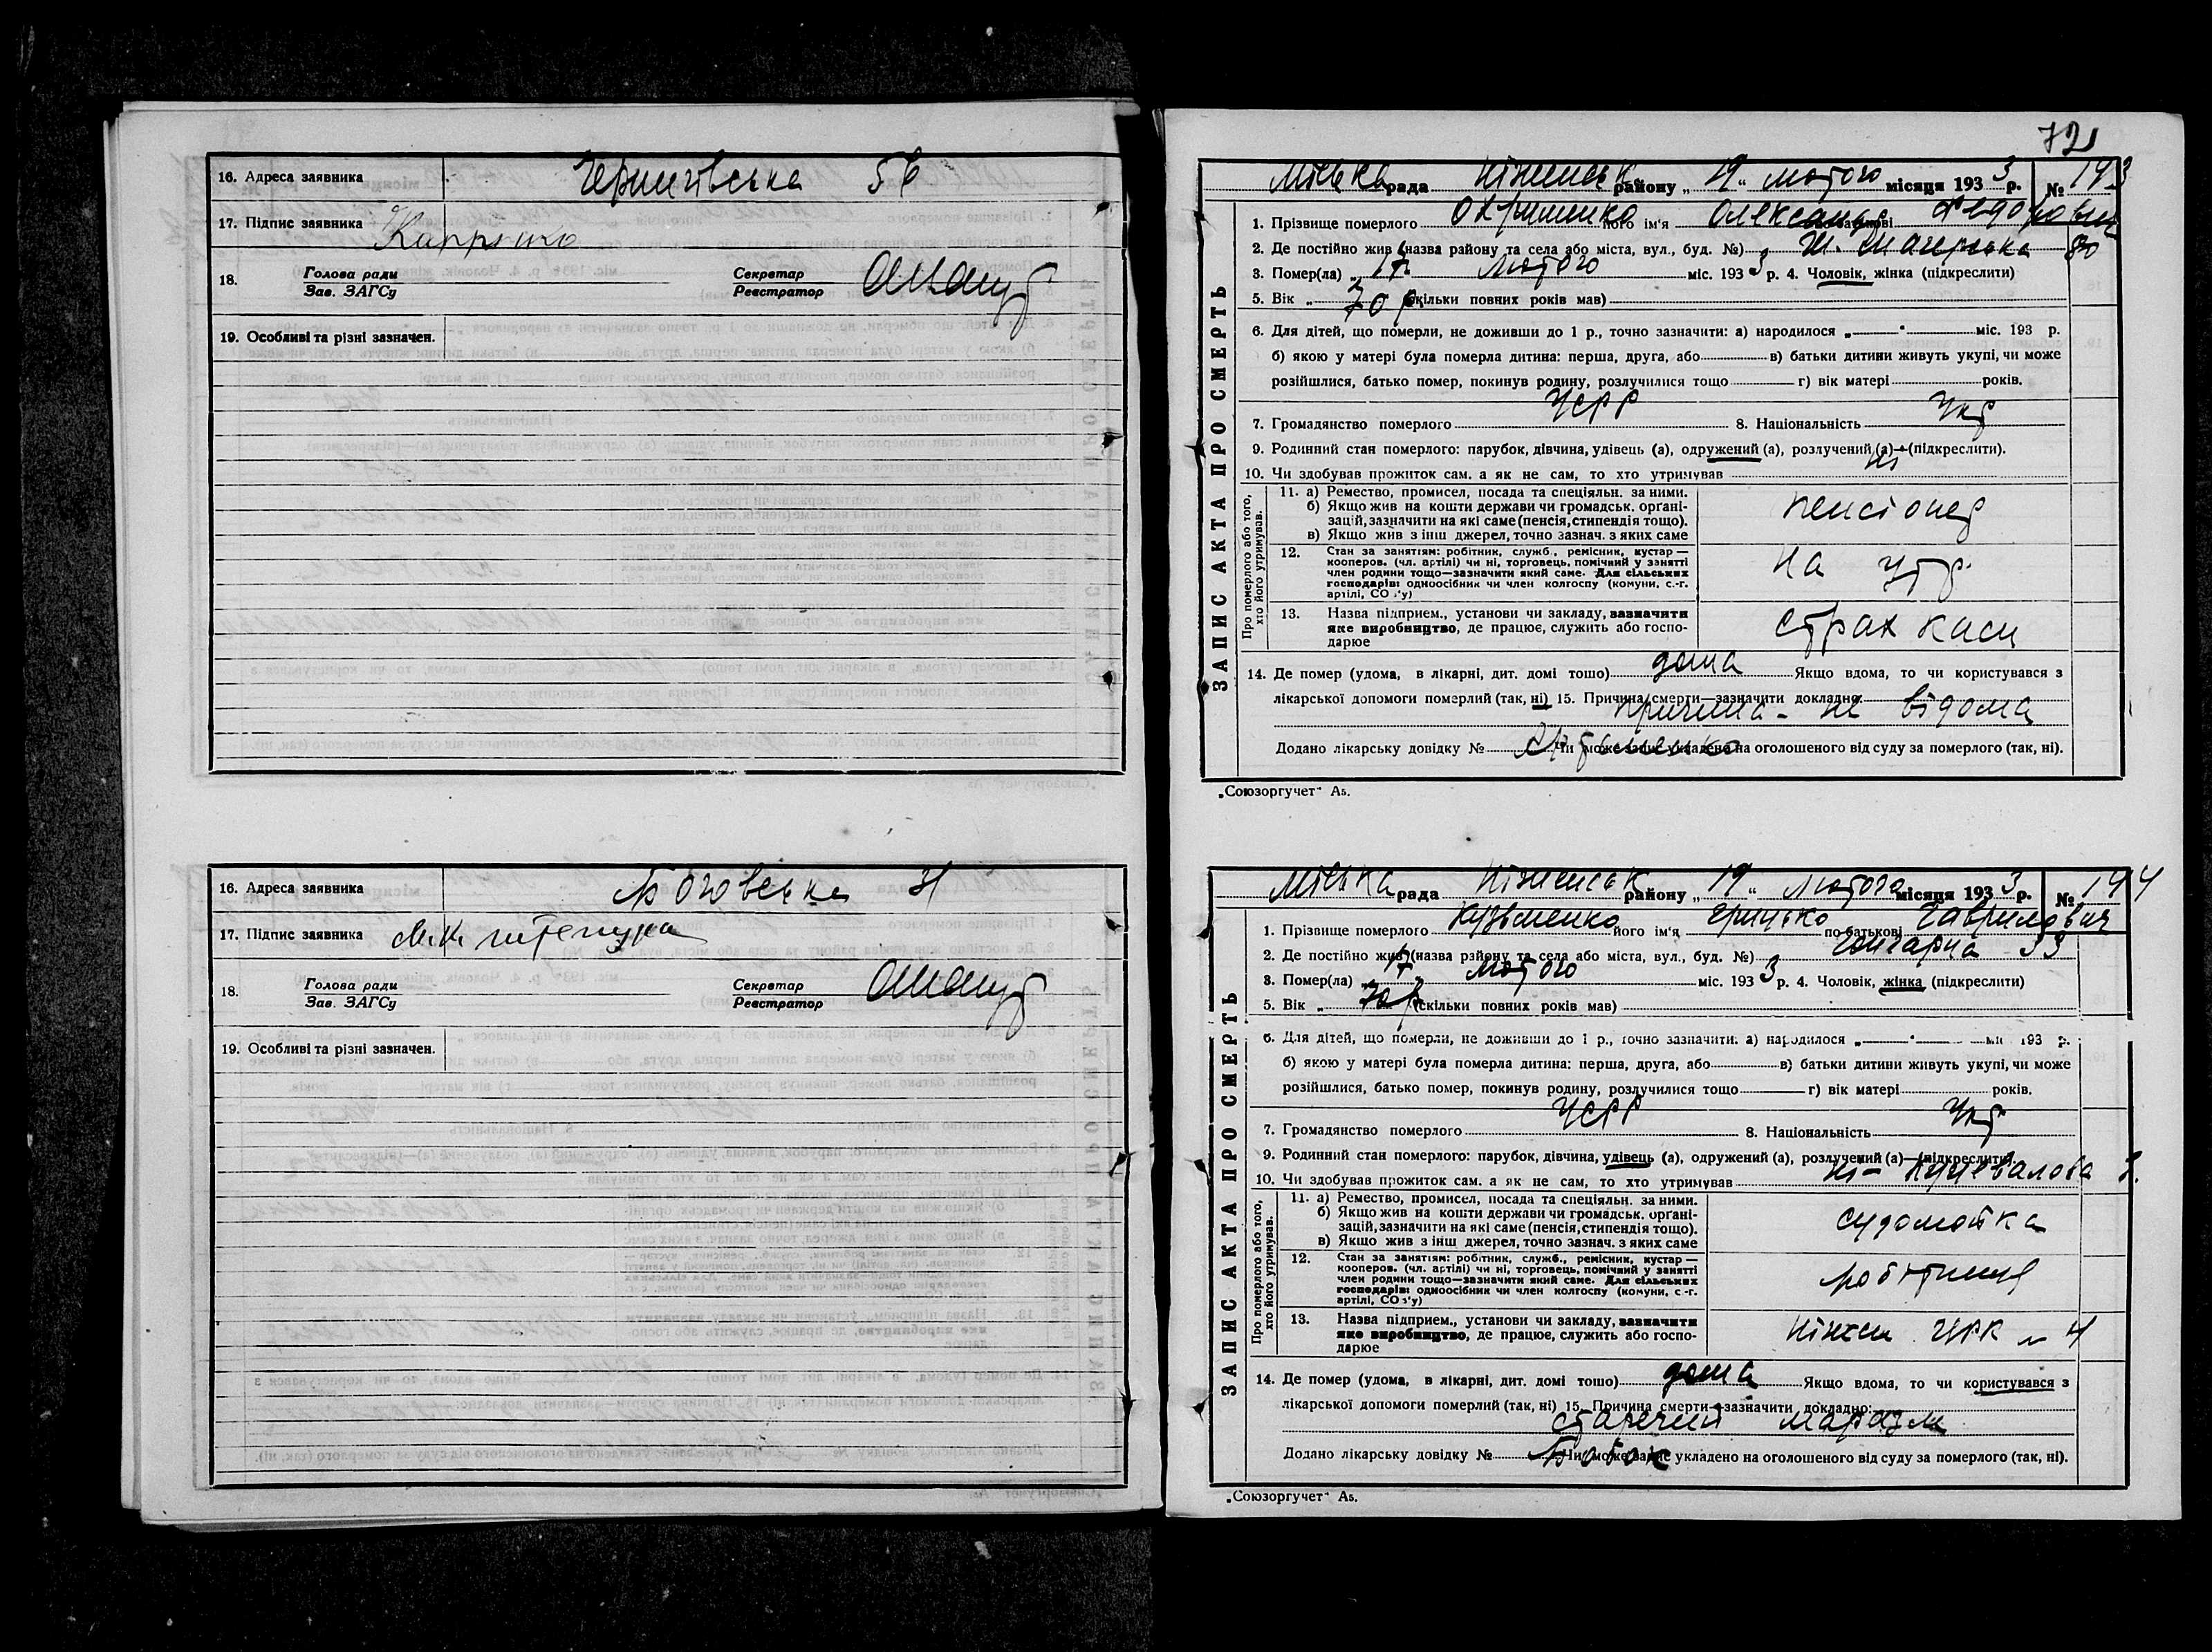 16. Адреса заявника Чернигівська 56
17. Підпис заявника
18. Голова ради Зав. ЗАГСу Секретар Реєстратор
19. Особливі та різні зазначен.
16. Адреса заявника 31
17. Підпис заявника
18. Голова ради Зав. ЗАГСу Секретар Реєстратор
19. Особливі та різні зазначен.
721
Міська рада Ніженськ району „19“ лютого місяця 1933 р. № 193
ЗАПИС АКТА ПРО СМЕРТЬ
1. Прізвище померлого Охрименко його ім'я Олександр по батькові
2. Де постійно жив (назва району та села або міста, вул., буд. №) 80
3. Помер(ла) „17 лютого міс. 1933 р. 4. Чоловік, жінка (підкреслити)
5. Вік „ 70 р. (скільки повних років мав)
6. Для дітей, що померли, не доживши до 1 р., точно зазначити: а) народилося „ “ міс. 193 р.
б) якою у матері була померла дитина: перша, друга, або в) батьки дитини живуть укупі, чи може
розійшлися, батько помер, покинув родину, розлучилися тощо г) вік матері років.
7. Громадянство померлого УСРР 8. Національність Укр
9. Родинний стан померлого: парубок, дівчина, удівець (а), одружений (а), розлучений (а)—(підкреслити).
10. Чи здобував прожиток сам, а як не сам, то хто утримував ні
Про померлого або того, хто його утримував.
11. а) Ремество, промисел, посада та спеціяльн. за ними.
б) Якщо жив на кошти держави чи громадськ. органі-
зацій, зазначити на які саме (пенсія, стипендія тощо).
в) Якщо жив з інш джерел, точно зазнач. з яких саме
пенсіонер
12. Стан за заняттям: робітник, служб., ремісник, кустар—
кооперов. (чл. артілі) чи ні, торговець, помічний у занятті
член родини тощо—зазначити який саме. Для сільських
господарів: одноосібник чи член колгоспу (комуни, с.-г.
артілі, СОЗ'у)
на утр.
13. Назва підприєм., установи чи закладу, зазначити
яке виробництво, де працює, служить або госпо-
дарює
страх каси
14. Де помер (удома, в лікарні, дит. домі тощо) дома Якщо вдома, то чи користувався з
лікарської допомоги померлий (так, ні) 15. Причина смерти—зазначити докладно:
причина - не відома
Додано лікарську довідку № Чи може запис укладено на оголошеного від суду за померлого (так, ні).
„Союзоргучет“ А5.
Міська рада Ніженськ району „19“ лютого місяця 1933 р. № 194
ЗАПИС АКТА ПРО СМЕРТЬ
1. Прізвище померлого Кузьменко його ім'я Грицько по батькові Гаврилович
2. Де постійно жив (назва району та села або міста, вул., буд. №) Гончарна 33
3. Помер(ла) 17 лютого міс. 1933 р. 4. Чоловік, жінка (підкреслити)
5. Вік „ 70 р. (скільки повних років мав)
6. Для дітей, що померли, не доживши до 1 р., точно зазначити: а) народилося „ “ міс 193 р.
б) якою у матері була померла дитина: перша, друга, або в) батьки дитини живуть укупі, чи може
розійшлися, батько помер, покинув родину, розлучилися тощо г) вік матері років.
7. Громадянство померлого УСРР 8. Національність Укр
9. Родинний стан померлого: парубок, дівчина, удівець (а), одружений (а), розлучений (а)—(підкреслити).
10. Чи здобував прожиток сам, а як не сам, то хто утримував ні -
Про померлого або того, хто його утримував.
11. а) Ремество, промисел, посада та спеціяльн. за ними.
б) Якщо жив на кошти держави чи громадськ. органі-
зацій, зазначити на які саме (пенсія, стипендія тощо).
в) Якщо жив з інш джерел, точно зазнач. з яких саме
судомойка
12. Стан за заняттям: робітник, служб., ремісник, кустар—
кооперов. (чл. артілі) чи ні, торговець, помічний у занятті
член родини тощо—зазначити який саме. Для сільських
господарів: одноосібник чи член колгоспу (комуни, с.-г.
артілі, СОЗ'у)
13. Назва підприєм., установи чи закладу, зазначити
яке виробництво, де працює, служить або госпо-
дарює
14. Де помер (удома, в лікарні, дит. домі тощо) дома Якщо вдома, то чи користувався з
лікарської допомоги померлий (так, ні) 15. Причина смерти—зазначити докладно:
старечий маразм
Додано лікарську довідку № Чи може запис укладено на оголошеного від суду за померлого (так, ні).
„Союзоргучет“ А5.